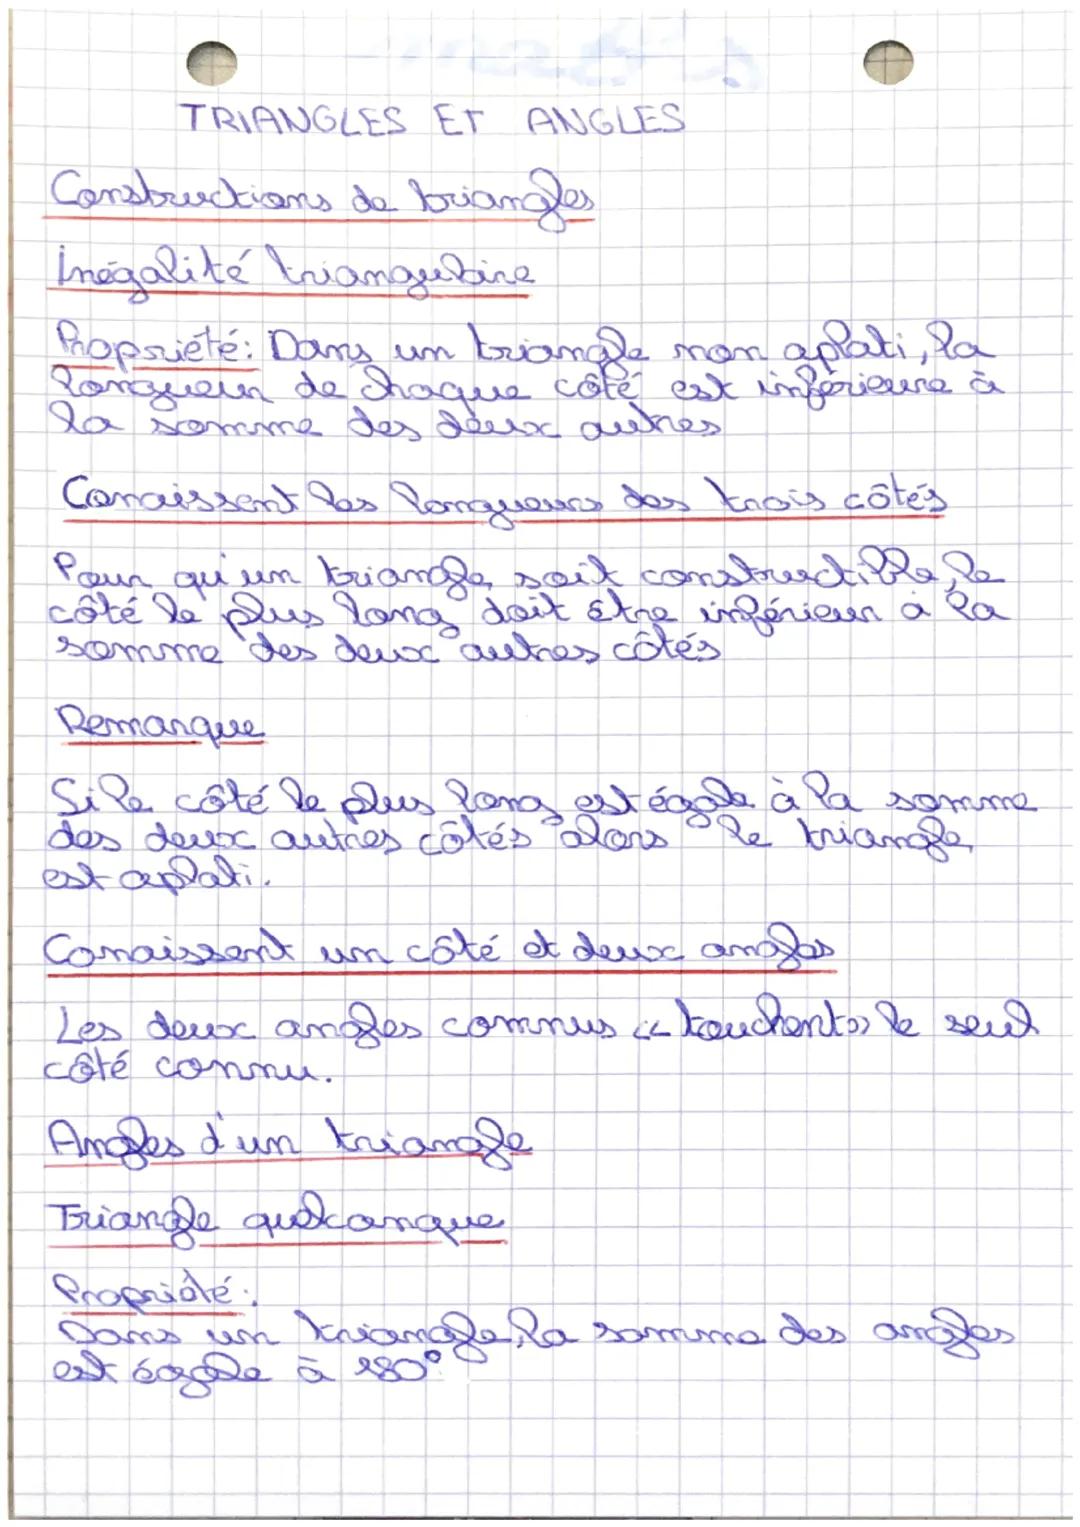 TRIANGLES ET ANGLES
Constructions de triangles
Inégalité triangulaire
Propriété: Dans un triangle non aplati, la
longueur de chaque côté est inférieure à
la somme des deux autres
Conaissent les longueurs des trois côtés
Pour qu'un triangle soit constructible, le
côté le plus long doit être inférieur à la
somme des deux autres côtés
Remarque
Si le côté le plus long est égale à la somme
des deux autres côtés alors le triangle
est aplati.
Conaissent un côté et deux angles
Les deux angles connus << touchent >> le seul
côté connu.
Angles d'un triangle
Triangle quelconque
Propriété:
Dans un triangle, la somme des angles
est égale à 180°